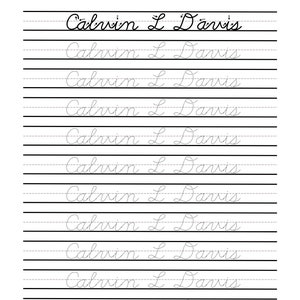 Calvin L Davis
Calvin L Davis
Calvin L Davis
Calvin L Davis
Calvin L Davis
Calvin L Davis
Calvin L Davis
Calvin L Davis
Calvin L Davis
Calvin L Davis